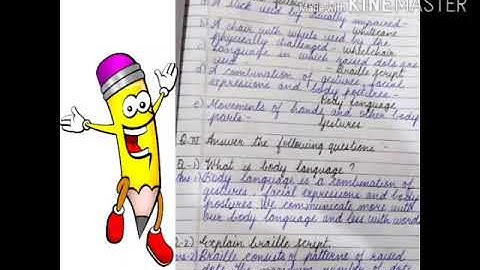 Made with KINEMASTER
a) A stick used by visually impaired -
whitecane
b) A chair with wheels used by the
physically challenged - wheelchair
c) Language in which raised dots are
used - Braille script
d) A combination of gestures, facial
expressions and body postures -
Body language
e) Movements of hands and other body
parts - gestures
Q-III Answer the following questions -
Q-1) What is body language?
Ans-1) Body language is a combination of
gestures, facial expressions and body
postures. We communicate more with
our body language and less with words
Q-2) Explain braille script.
Ans-2) Braille consists of patterns of raised
dots